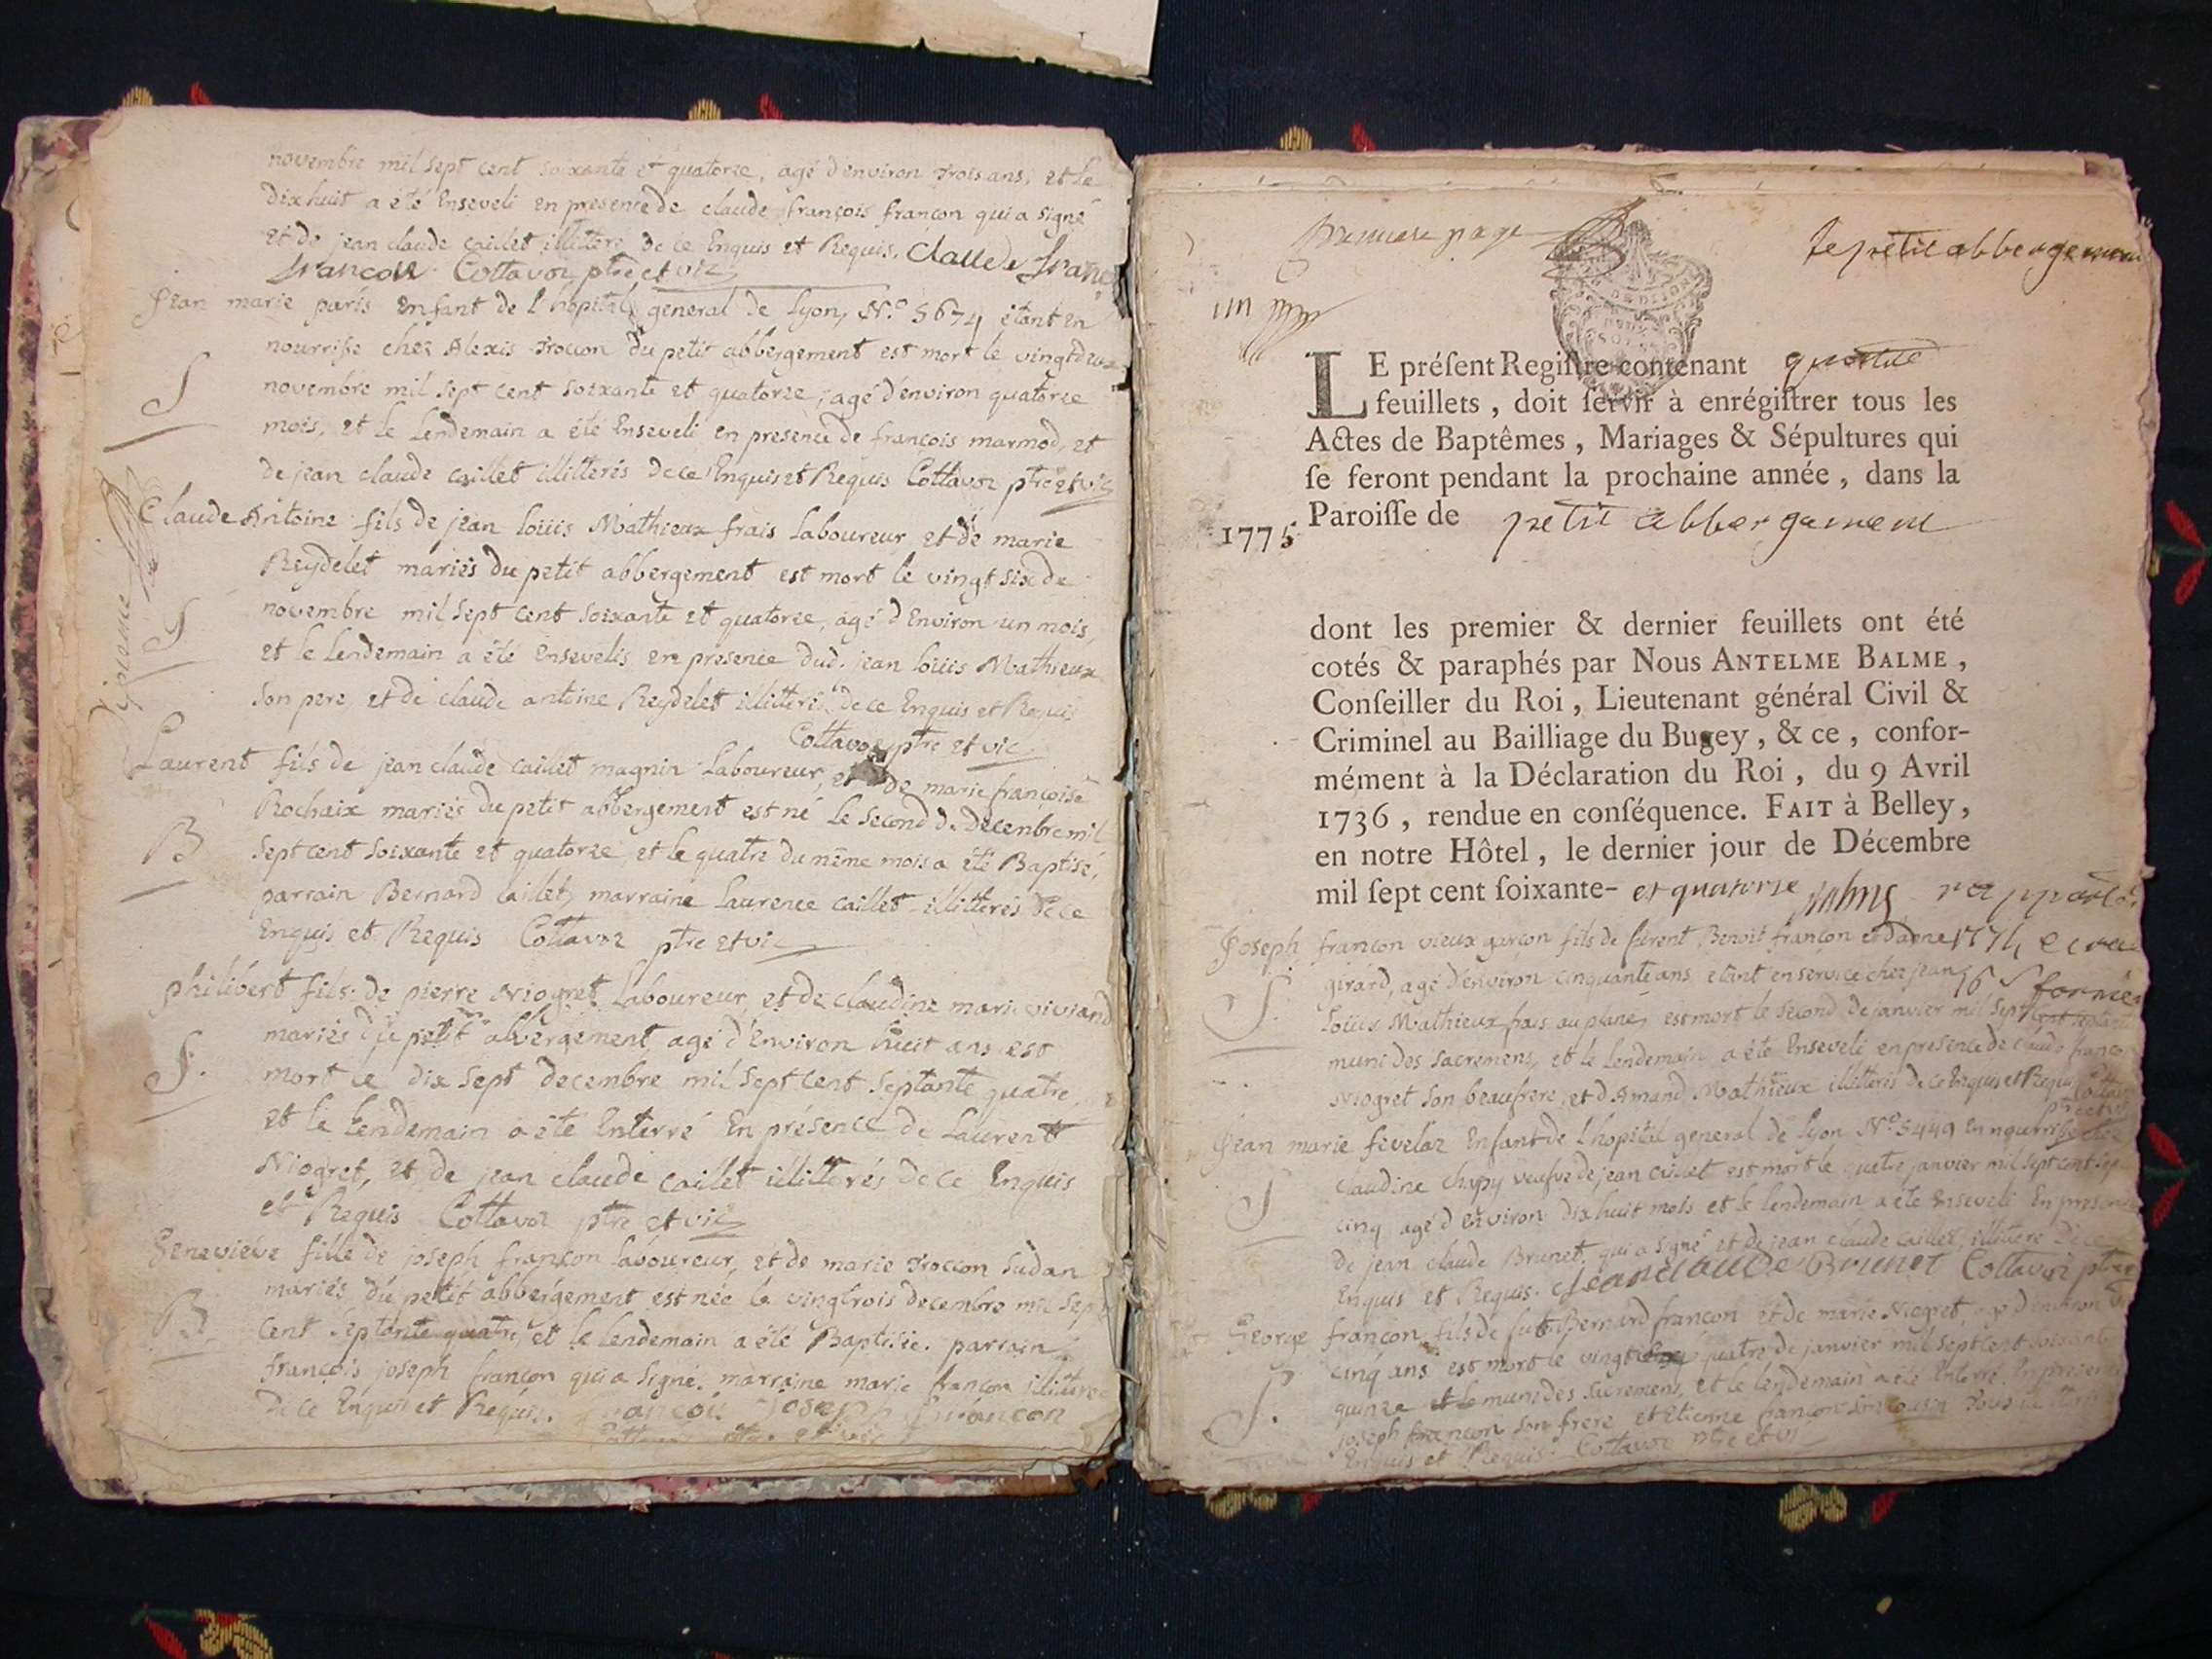 novembre mil sept cent soixante et quatorze, agé d'environ trois ans, et le
dixhuit a été Enseveli en presence de claude françois françon qui a signé
et de jean claude caillet illitteré de ce Enquis et Requis. Claude franc
francon Cottavoz ptre et vic
Jean marie paris Enfant de l'hopital general de Lyon, N.° 5674 étant en
nourrisse chez Alexis Troccon du petit abbergement est mort le vingtdeux
novembre mil sept cent soixante et quatorze, agé d'environ quatorze
mois, et le lendemain a été Enseveli en presence de françois marmod, et
S
de jean claude caillet illitterés de ce Enquis et Requis Cottavoz ptre et vic
Claude Antoine fils de jean loüis Mathieux frais Laboureur, et de marie
Reydelet mariés du petit abbergement est mort le vingt six de
novembre mil sept cent soixante et quatorze, agé d'Environ un mois,
S
et le lendemain a été Ensevelis en presence dud. jean loüis Mathieux
son pere, et de claude antoine Reydelet illitterés de ce Enquis et Requis
Cottavoz ptre et vic
Laurent fils de jean claude caillet magnin Laboureur, et de marie françoise
Rochaix mariés du petit abbergement est né le second de decembre mil
B
sept cent soixante et quatorze et le quatre du même mois a été Baptisé,
parrain Bernard caillet, marraine Laurence caillet illitterés de ce
Enquis et Requis Cottavoz ptre et vic
philibert fils de pierre Niogret Laboureur, et de claudine marie viviand
mariés du petit abbergement agé d'Environ huit ans est
S.
mort le dix sept decembre mil sept cent septante quatre,
et le lendemain a été Enterré En présence de Laurent
Niogret, et de jean claude caillet illitterés de ce Enquis
et Requis Cottavoz ptre et vic
Genevieve fille de joseph françon laboureur, et de marie Troccon Sudan
mariés du petit abbergement est née le vingtrois decembre mil sept
B.
cent septante quatre, et le lendemain a été Baptisée. parrain
françois joseph françon qui a signé. marraine marie françon illitterée
de ce Enquise et Requise. françois Joseph francon
Cottavoz ptre et vic
premiere page
le petit abbergement
un
LE préſent Regiſtre contenant quatre
feuillets, doit ſervir à enrégiſtrer tous les
Actes de Baptêmes, Mariages & Sépultures qui
ſe feront pendant la prochaine année, dans la
1775 Paroiſſe de petit abbergement
dont les premier & dernier feuillets ont été
cotés & paraphés par Nous ANTELME BALME,
Conſeiller du Roi, Lieutenant général Civil &
Criminel au Bailliage du Bugey, & ce, confor-
mément à la Déclaration du Roi, du 9 Avril
1736, rendue en conſéquence. FAIT à Belley,
en notre Hôtel, le dernier jour de Décembre
mil ſept cent ſoixante- et quatorze
Joseph françon vieux garçon fils de furent Benoit françon et d'anne
girard, agé d'environ cinquante ans etant en service chez jean
S.
loüis Mathieux frais au planet, est mort le second de janvier mil sept
muni des sacremens, et le lendemain a été Enseveli en presence de claude franço
Niogret son beaufrere, et d'Amand Mathieux illitterés de ce Enquis et Requis Cottavoz
ptre et vic
Jean marie fevelaz Enfant de l'hopital general de Lyon N.° 5449 en nourrisse chez
claudine chapy veufve de jean caillet est mort le quatre janvier mil sept cent sep
S
cinq agé d'environ dixhuit mois et le lendemain a été Enseveli En presence
de jean claude Brunet, qui a signé et de jean claude caillet, illitteré de ce
Enquis et Requis. Jean claude Brunet Cottavoz ptre
George françon, fils de fut Bernard françon et de marie Niogret, agé d'environ
cinq ans est mort le vingt quatre de janvier mil sept cent soixante
S.
quinze muni des sacremens, et le lendemain a été Enterré. En presence
joseph françon son frere et Etienne françon son cousin
Enquis et Requis. Cottavoz ptre et vi